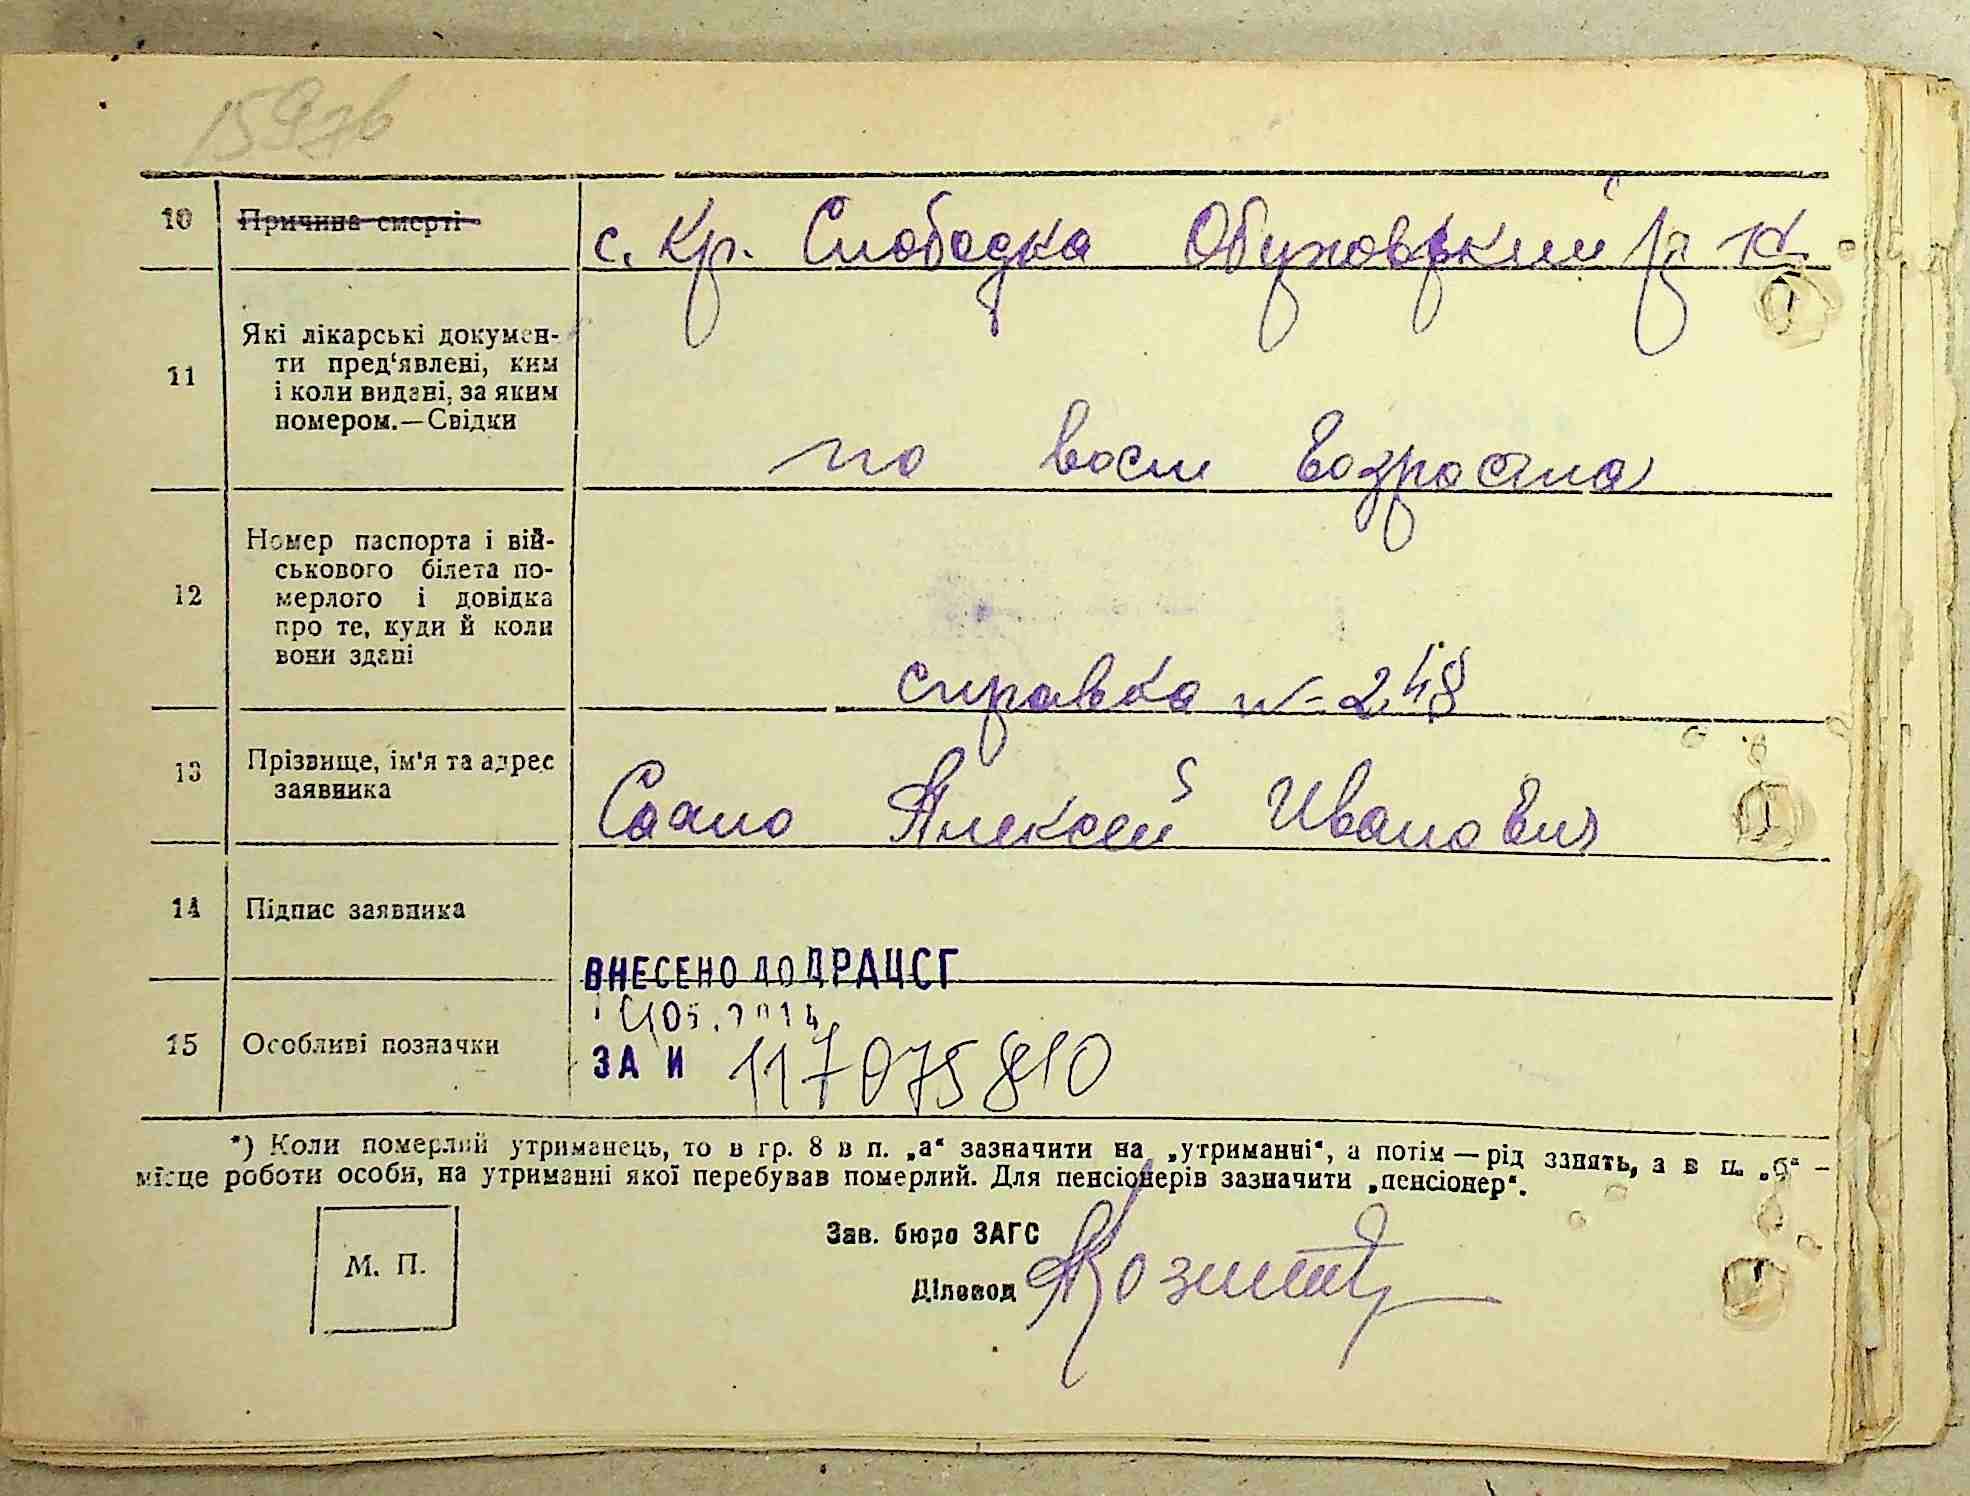 159зв
10 Причина смерті с. Кр. Слободка Обуховский р н
11 Які лікарські докумен-
ти пред'явлені, ким
і коли видані, за яким
номером.—Свідки
по восм возроста
12 Номер паспорта і вій-
ськового білета по-
мерлого і довідка
про те, куди й коли
вони здані
справка N=248
13 Прізвище, ім'я та адрес
заявника
Саано Алексей Иванович
14 Підпис заявника
ВНЕСЕНО ДО ДРАЦСГ
05.2014
15 Особливі позначки
ЗА И 117075810
*) Коли померлий утриманець, то в гр. 8 в п. „а“ зазначити на „утриманні“, а потім — рід занять, а в п. „б“ —
місце роботи особи, на утриманні якої перебував померлий. Для пенсіонерів зазначити „пенсіонер“.
Зав. бюро ЗАГС
М. П.
Діловод